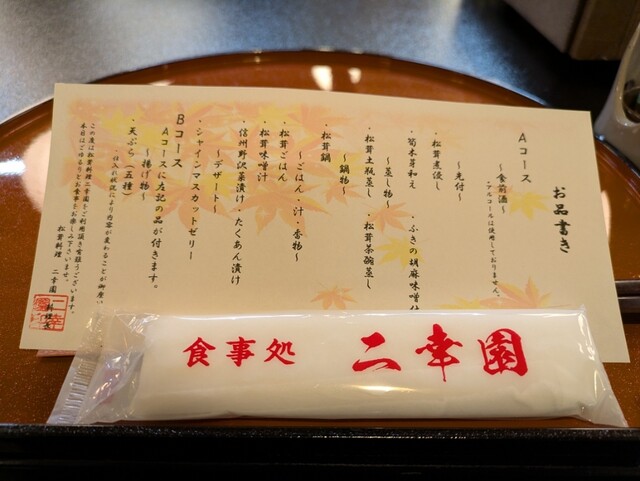 お品書き
Aコース
〜食前酒〜
・アルコールは使用しておりません。
〜先付〜
・松茸煮浸し
・筍木芽和え
・ふきの胡麻味噌
〜蒸し物〜
・松茸土瓶蒸し
・松茸茶碗蒸し
〜鍋物〜
・松茸鍋
〜ごはん・汁・香物〜
・松茸ごはん
・松茸味噌汁
・信州野沢菜漬け・たくあん漬け
〜デザート〜
・シャインマスカットゼリー
Bコース
Aコースに左記の品が付きます。
〜揚げ物〜
・天ぷら（五種）
・仕入れ状況により内容が変わることが御座い
この度は松茸料理二幸園をご利用頂き有難うございます。
本日はごゆるりとお食事をお楽しみ下さいませ。
松茸料理 二幸園
食事処 二幸園